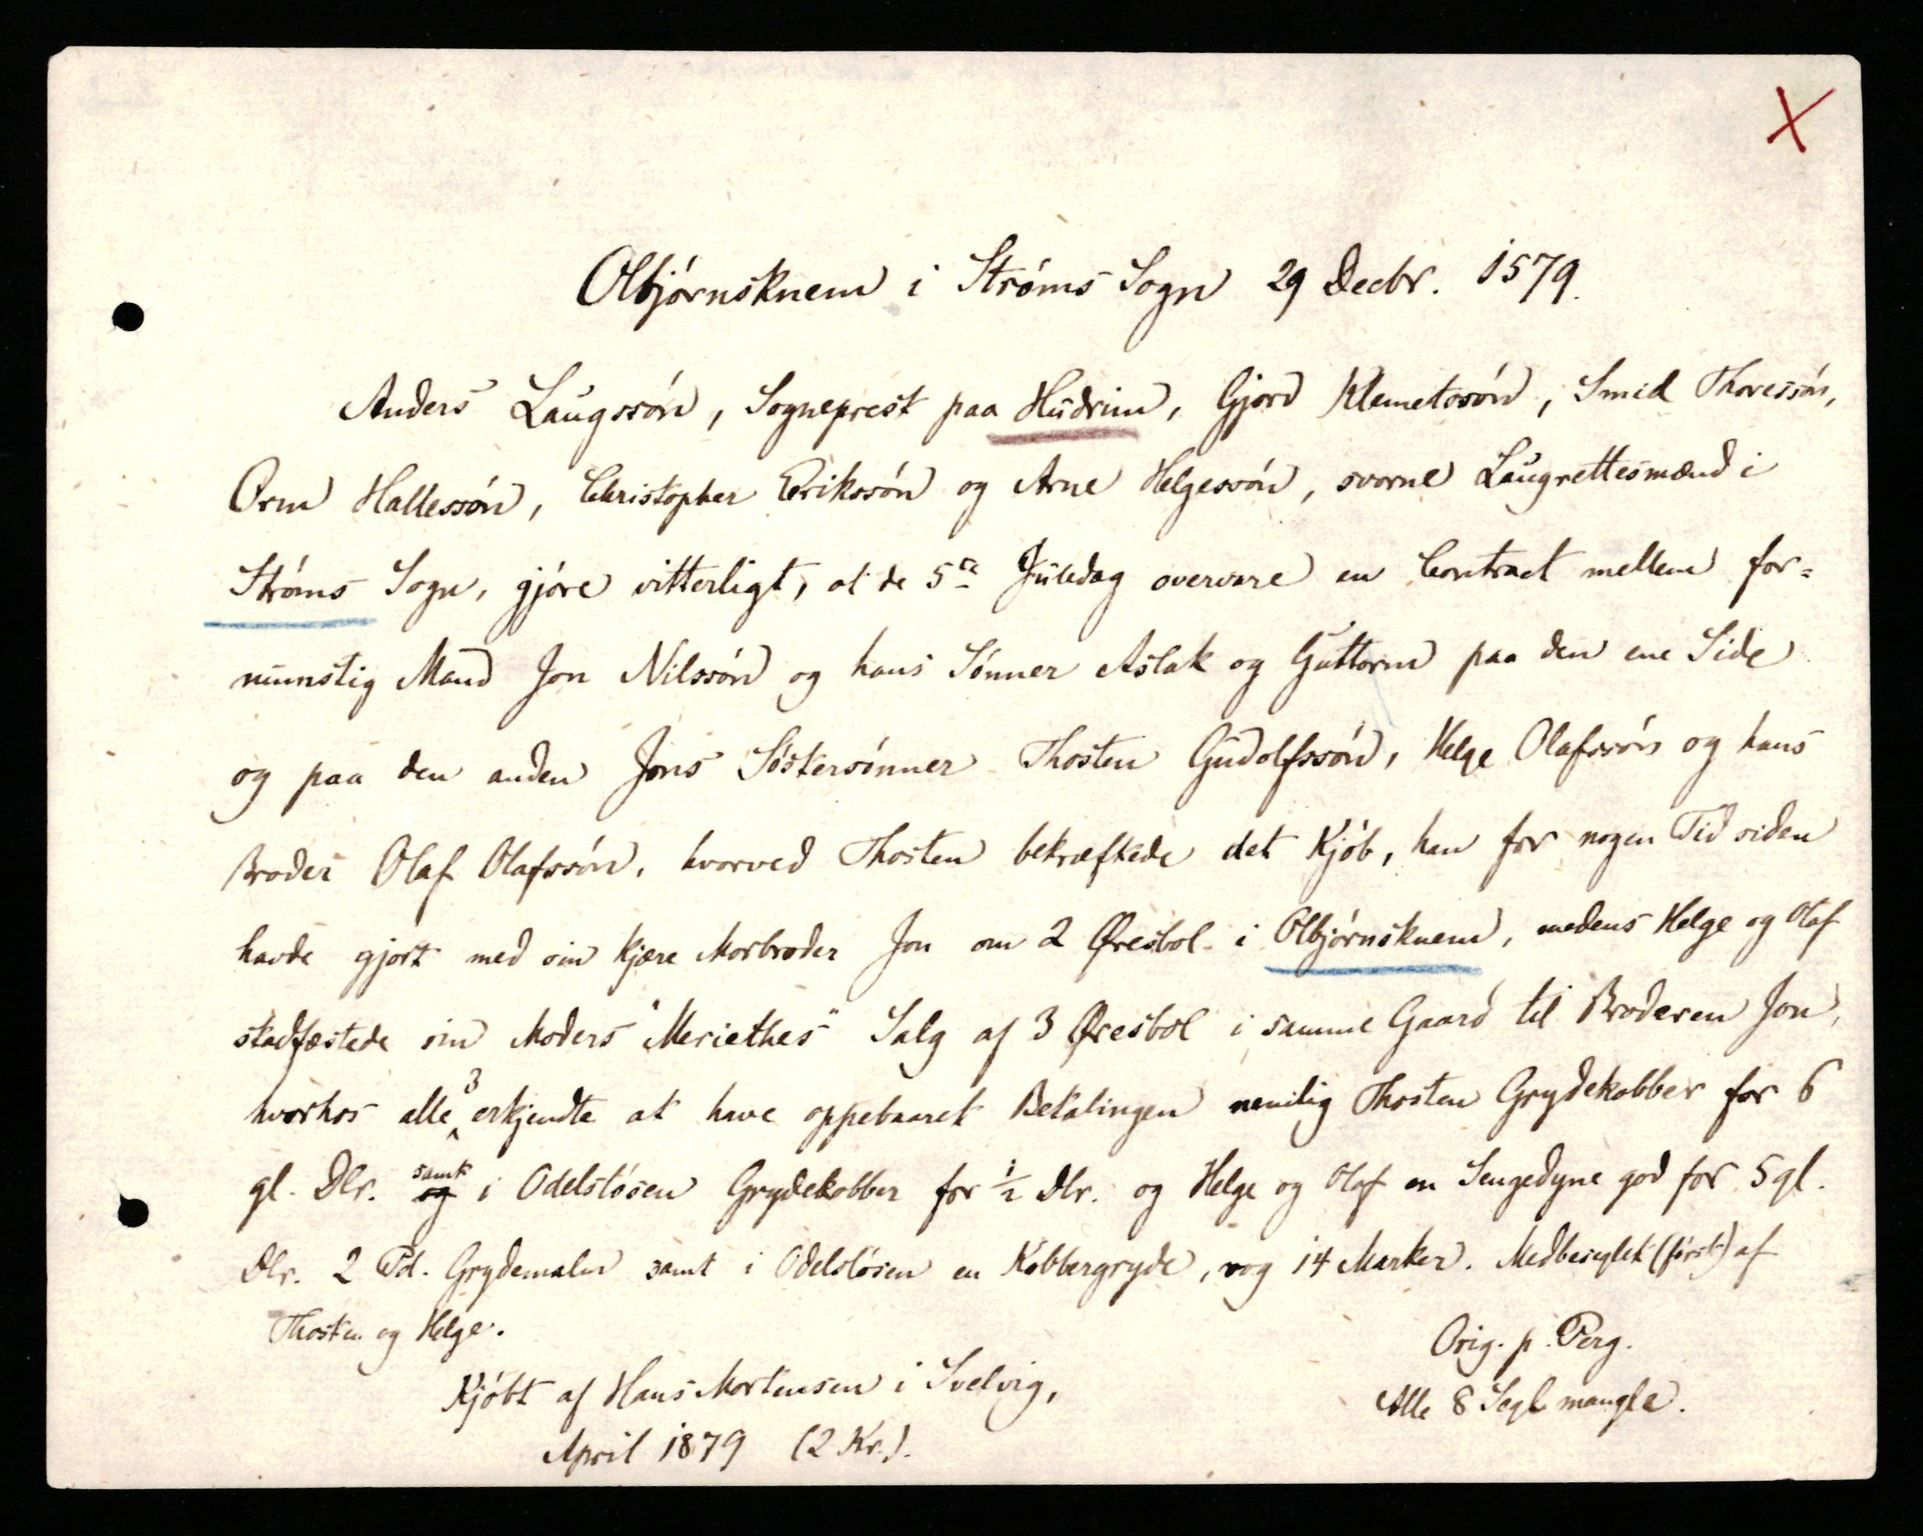 X
Olbjórnsknem i Stróms Sogn 29 Decbr. 1579.
Anders Laugssón, Sogneprest paa Hudrim, Gjord Klemetssón, Smid Thoressón,
Orm Hallessón, Christopher Erikssón og Arne Helgessón, svorne Laugrettesmænd i
Stróms Sogn, gjóre vitterligt, at de 5te Juledag overvare en Contract mellem for=
nunstig Mand Jon Nilssón og hans Sónner Aslak og Guttorm paa den ene Side
og paa den anden Jons Sóstersónner Thosten Gudolfssón, Helge Olafssón og hans
Broder Olaf Olafssón, hvorved Thosten bekræftede det Kjób, han for nogen Tid siden
havde gjort med sin kjære Morbroder Jon om 2 Øresbol i Olbjórnsknem, medens Helge og Olaf
stadfæstede sin Moders "Meriethes" Salg af 3 Øresbol i samme Gaard til Broderen Jon,
hvorhos alle 3 erkjendte at have oppebaaret Betalingen nemlig Thosten Grydekobber for 6
gl. Dlr. og samt i Odelslósen Grydekobber for 1/2 Dlr. og Helge og Olaf en Sengedyne god for 5 gl.
Dlr. 2 Pd. Grydemalm samt i Odelslósen en Kobbergryde, vog 14 Marker. Medbeseglet (fórst) af
Thosten og Helge.
Orig. p. Perg.
Kjóbt af Hans Mortensen i Svelvig,
Alle 8 Segl mangle.
April 1879 (2 Kr.).